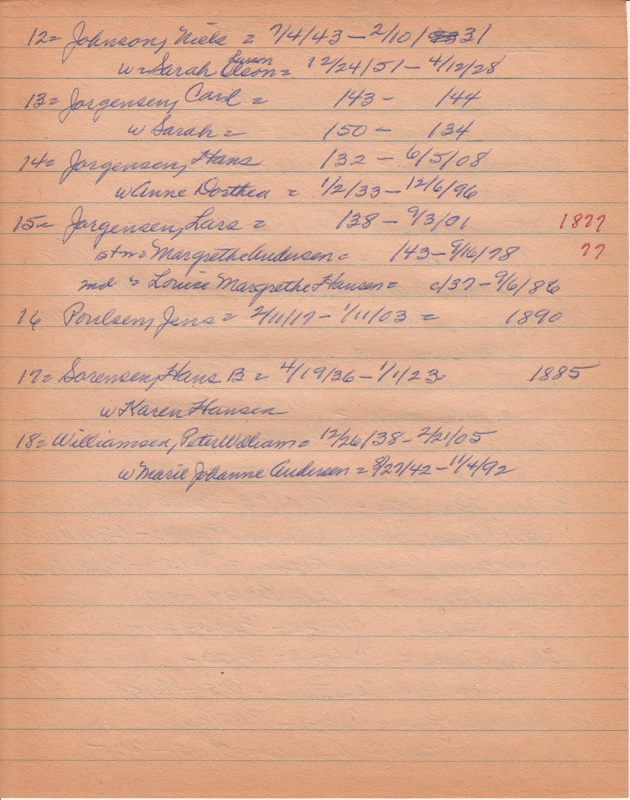 12= Johnson, Niels = 7/4/43 – 2/10/31
w= Sarah Olson = 12/24/51 – 4/12/28
13= Jorgensen, Carl = 143 – 144
w Sarah = 150 – 134
14= Jorgensen, Hans 132 – 6/5/08
w Anne Dorthea = 1/2/33 – 12/6/96
15= Jorgensen, Lars = 138 – 9/3/01 1877
1st m= Margrethe Andersen = 143 – 9/16/78 77
md = Louise Margrethe Hansen = c/37 – 9/6/86
16 Poulsen, Jens = 2/11/17 – 1/11/03 = 1890
17= Sorensen, Hans B = 4/19/36 – 1/1/23 1885
w Karen Hansen
18= Williamsen, Peter William = 12/26/38 – 2/21/05
w Marie Johanne Andersen = 8/27/42 – 11/4/92